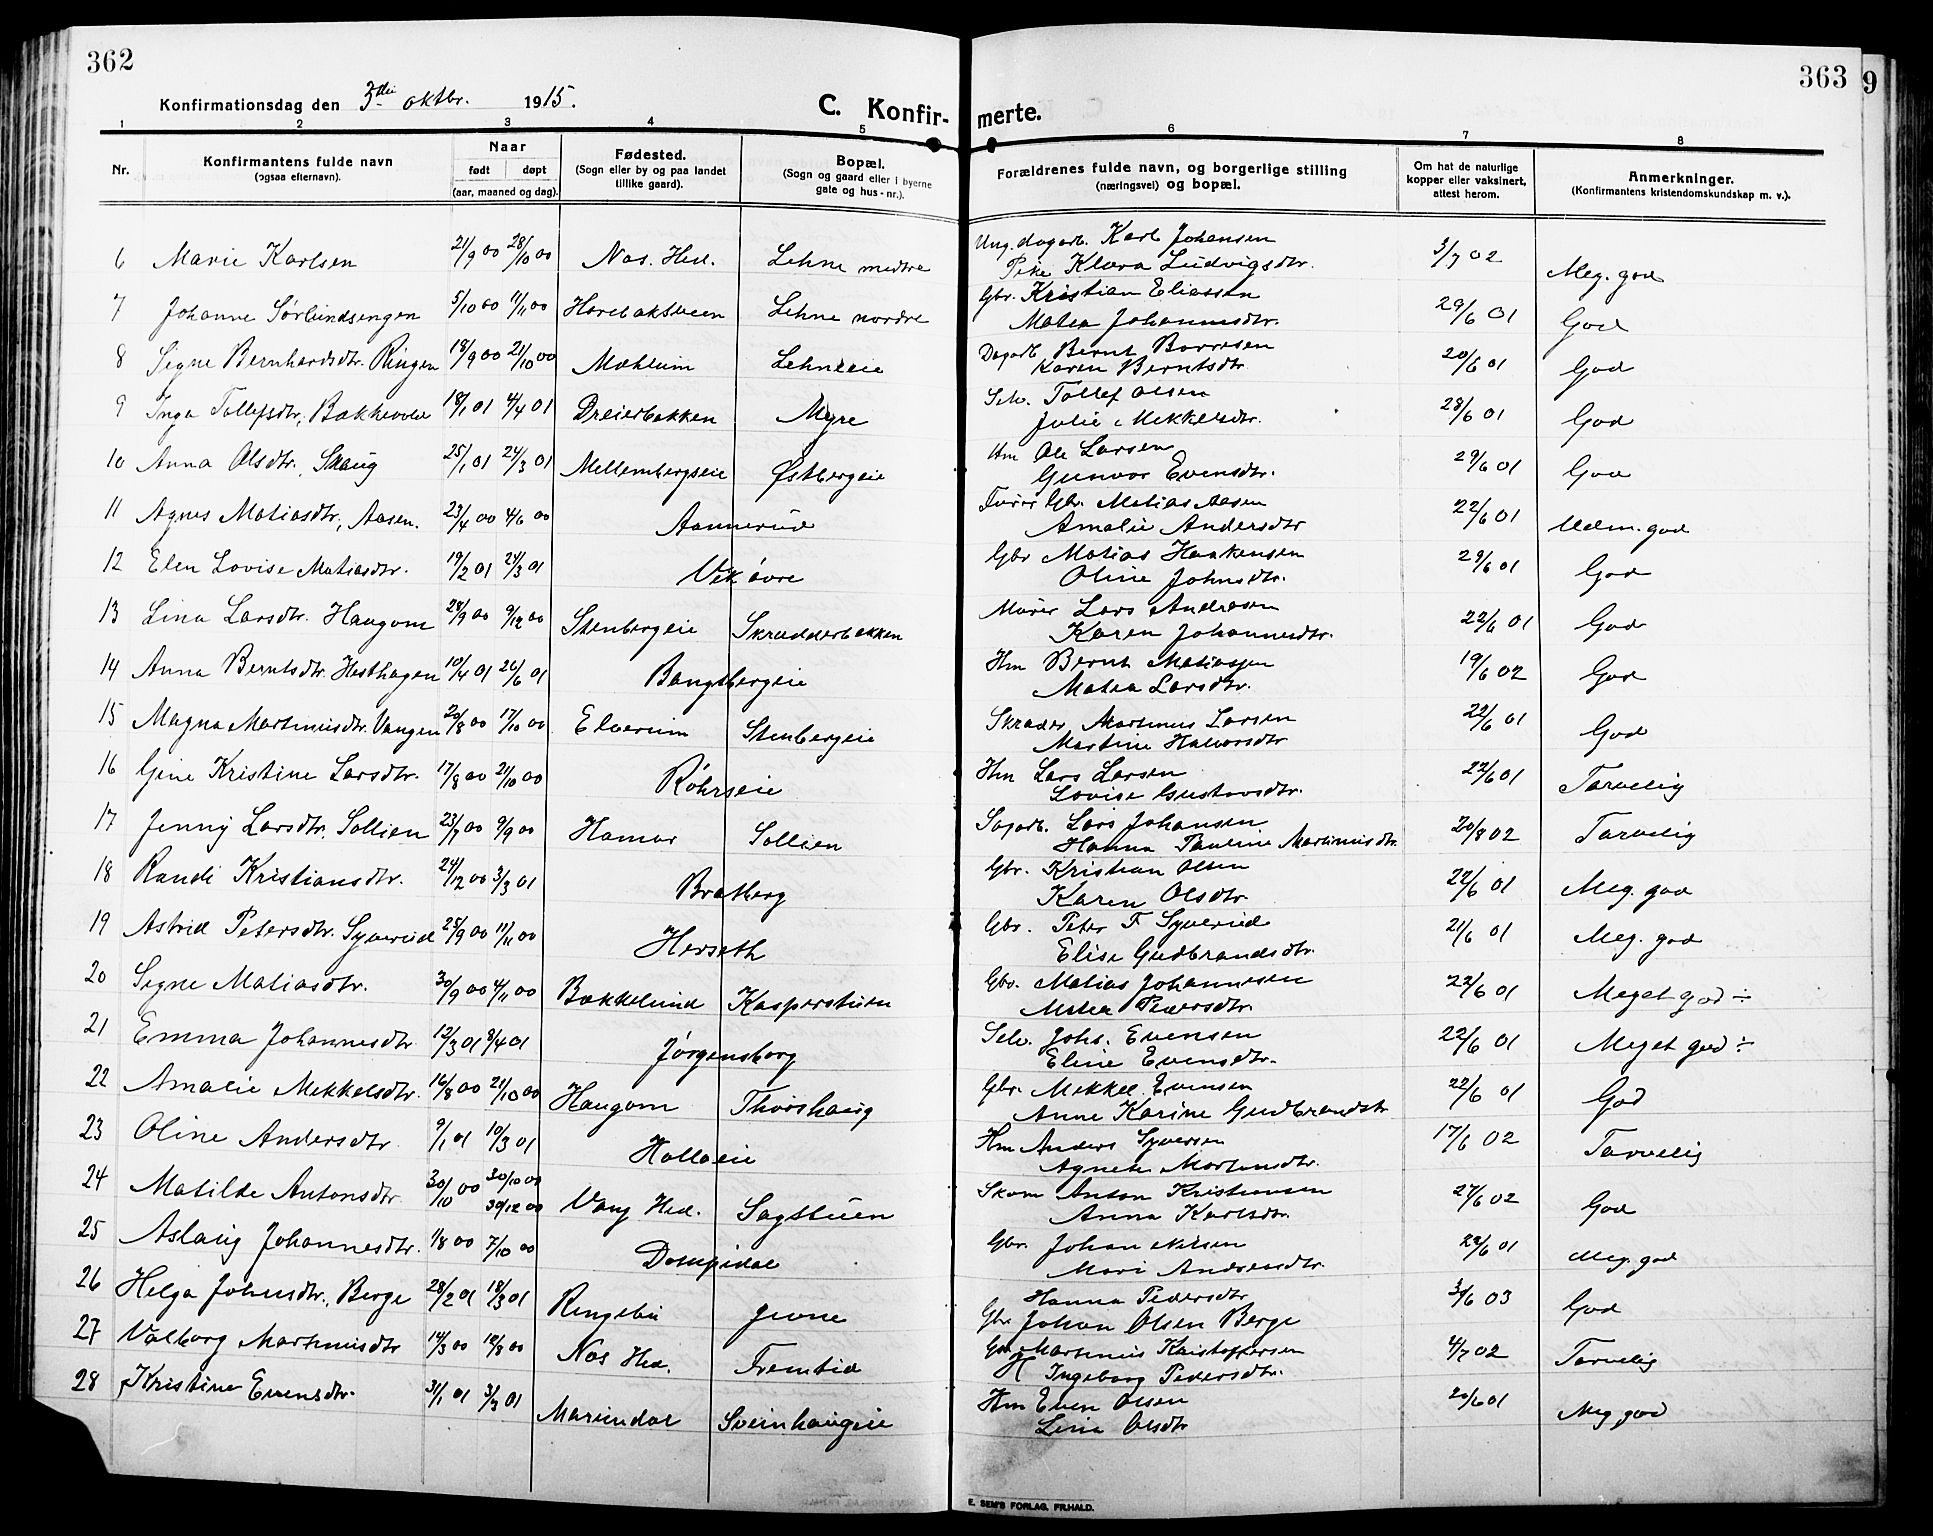 362
363
9
Konfirmationsdag den 3die oktbr. 1915.
C. Konfir-
merte.
1 2 3 4 5 6 7 8
Nr.
Konfirmantens fulde navn
(ogsaa efternavn).
Naar
født døpt
(aar, maaned og dag).
Fødested.
(Sogn eller by og paa landet
tillike gaard).
Bopæl.
(Sogn og gaard eller i byerne
gate og hus-nr.).
Forældrenes fulde navn, og borgerlige stilling
(næringsvei) og bopæl.
Om hat de naturlige
kopper eller vaksinert,
attest herom.
Anmerkninger.
(Konfirmantens kristendomskundskap m. v.).
6 Marie Karlsen 21/9 00 28/10 00 Nas. Hed. Lehne medtre Ung. dagarb. Karl Johansen
Pike Klara Ludvigsdtr. 3/7 02 Meg. god
7 Johanne Sørlundsengen 5/10 00 11/11 00 Horebaktveen Lehne nordre Gbr. Kristian Eliassen
Matea Johannesdtr. 29/6 01 God
8 Signe Bernhardsdtr. Ringen 18/9 00 21/10 00 Mæhlum Lehneeie Dagarb. Bernt Borresen
Karen Berntsdtr. 20/6 01 God
9 Inga Tollefsdtr, Bakkevolle 18/1 01 4/4 01 Dreierbakken Myre Selv. Tollef Olsen
Julie Mekkelsdtr. 28/6 01 God
10 Anna Olsdtr. Skaug 25/1 01 24/3 01 Mellembergseie Østbergeie Hm Ole Larsen
Gunvor Evensdtr. 29/6 01 God
11 Agnes Matiasdtr, Aasen. 23/4 00 4/6 00 Aannerud Gbr. Matias Aasen
Amalie Andersdtr 22/6 01 Udm. god
12 Elen Lovise Matiasdtr. 19/2 01 24/3 01 Vik øvre Gbr Matias Haakensen
Oline Johnsdtr. 29/6 01 God
13 Lina Larsdtr. Haugom 28/9 00 9/12 00 Stenbergeie Skrædderbakken Murer Lars Andresen
Karen Johannesdtr. 22/6 01 God
14 Anna Berntsdtr. Hesthagen 10/4 01 26/6 01 Bangsbergeie Hm Bernt Matiassen
Matea Larsdtr. 19/6 02 God
15 Magna Martinusdtr. Vangen 20/8 00 17/10 00 Elverum Stenbergeie Skræder Martinus Larsen
Martine Halvorsdtr 22/6 01 God
16 Gine Kristine Larsdtr. 17/8 00 21/10 00 Røhrseie Hm Lars Larsen
Lovise Gustavsdtr. 22/6 01 Tarvelig
17 Jenny Larsdtr. Sollien 23/7 00 9/9 00 Hamar Sollien Sagarb. Lars Johansen
Hanna Pauline Martinusdtr. 20/8 02 Tarvelig
18 Randi Kristiansdtr. 24/12 00 3/3 01 Bratberg Gbr. Kristian Olsen
Karen Olsdtr. 22/6 01 Meg. god
19 Astrid Petersdtr. Syverud 25/9 00 11/11 00 Herseth Gbr. Peter F Syverud
Elise Gudbrandsdtr. 21/6 01 Meg. god
20 Signe Matiasdtr. 30/9 00 4/11 00 Bækkelund Kasperstuen Gbr. Matias Johannesen
Matea Pedersdtr. 22/6 01 Meget god ÷
21 Emma Johannesdtr 12/3 01 8/4 01 Jørgensborg Selv. Johs. Evensen
Eline Evensdtr. 22/6 01 Meget god ÷
22 Amalie Mekkelsdtr. 16/8 00 21/10 00 Haugom Thorshaug Gbr. Mekkel Evensen
Anne Karine Gudbrandsdtr 22/6 01 God
23 Oline Andersdtr 9/1 01 10/3 01 Holloeie Hm Anders Syversen
Agnete Martinsdtr. 17/6 02 Tarvelig
24 Matilde Antonsdtr. 30/10 00 30/10 00
30/12 00 Vang Hed. Sagstuen Skom Anton Kristiansen
Anna Karlsdtr. 27/6 02 God
25 Aslaug Johannesdtr. 1/8 00 7/10 00 Dompidal Gbr. Johan Nilsen
Mari Andersdtr. 29/6 01 Meg. god
26 Helga Johansdtr. Berge 28/2 01 18/3 01 Ringebu Hanna Pedersdtr
Gbr Johan Olsen Berge 3/6 03 God
27 Valborg Martinusdtr 14/3 00 12/8 00 Nas Hed. Fremtid Gbr Martinus Kristoffersen
H Ingeborg Pedersdtr. 4/7 02 Tarvelig
28 Kristine Evensdtr. 31/1 01 3/3 01 Marendal Sveinhaugeie Hm Even Olsen
Lina Olsdtr 20/6 01 Meg god
E. SEM'S FORLAG, FR.HALD.